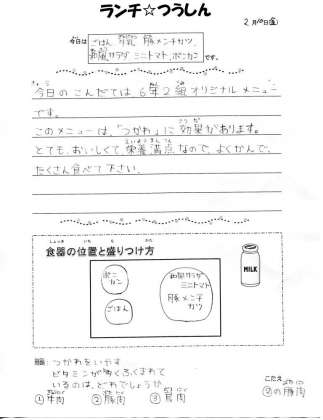 ランチ☆つうしん
2月10日(金)
今日は
ごはん 牛乳 豚メンチカツ
サラダ ミニトマト、ポンカン
です。
今日のこんだては 6年2組オリジナルメニュー
です。
このメニューは、「つかれ」に 効果があります。
とても、おいしくて 栄養満点なので、よくかんで、
たくさん食べて下さい。
食器の位置と盛りつけ方
ポンカン
ごはん
サラダ
ミニトマト
豚メンチカツ
MILK
問題:つかれをいやす
ビタミンが多くふくまれて
いるのは、どれでしょうか。
①牛肉 ②豚肉 ③鶏肉
こたえ
②の豚肉